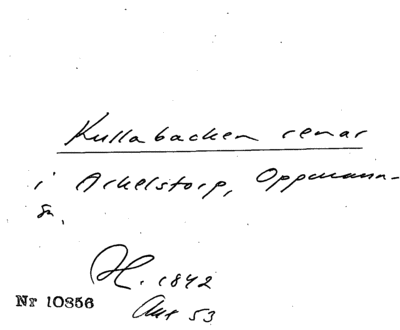 Kullabacken renar
i Arkelstorp, Oppmanna-
sn.
H. 1842
Nr 10856
Aug 53